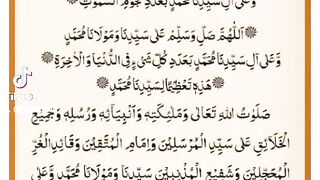 وَعَلٰٓى اٰلِ سَيِّدِنَا مُحَمَّدٍ بِعَدَدِ نُجُوْمِ السَّمٰوٰتِ
اَللّٰهُمَّ صَلِّ وَسَلِّمْ عَلٰى سَيِّدِنَا وَمَوْلَانَا مُحَمَّدٍ
وَّعَلٰٓى اٰلِ سَيِّدِنَا مُحَمَّدٍ بِعَدَدِ كُلِّ شَيْءٍ فِى الدُّنْيَا وَالْاٰخِرَةِ
هٰذِهٖ تَعْظِيْمًا لِسَيِّدِنَا مُحَمَّدٍ
صَلَوٰتُ اللّٰهِ تَعَالٰى وَمَلٰٓئِكَتِهٖ وَاَنْبِيَآئِهٖ وَرُسُلِهٖ وَجَمِيْعِ
الْخَلَآئِقِ عَلٰى سَيِّدِ الْمُرْسَلِيْنَ وَاِمَامِ الْمُتَّقِيْنَ وَقَآئِدِ الْغُرِّ
الْمُحَجَّلِيْنَ وَشَفِيْعِ الْمُذْنِبِيْنَ سَيِّدِنَا وَمَوْلَانَا مُحَمَّدٍ وَّعَلٰٓى